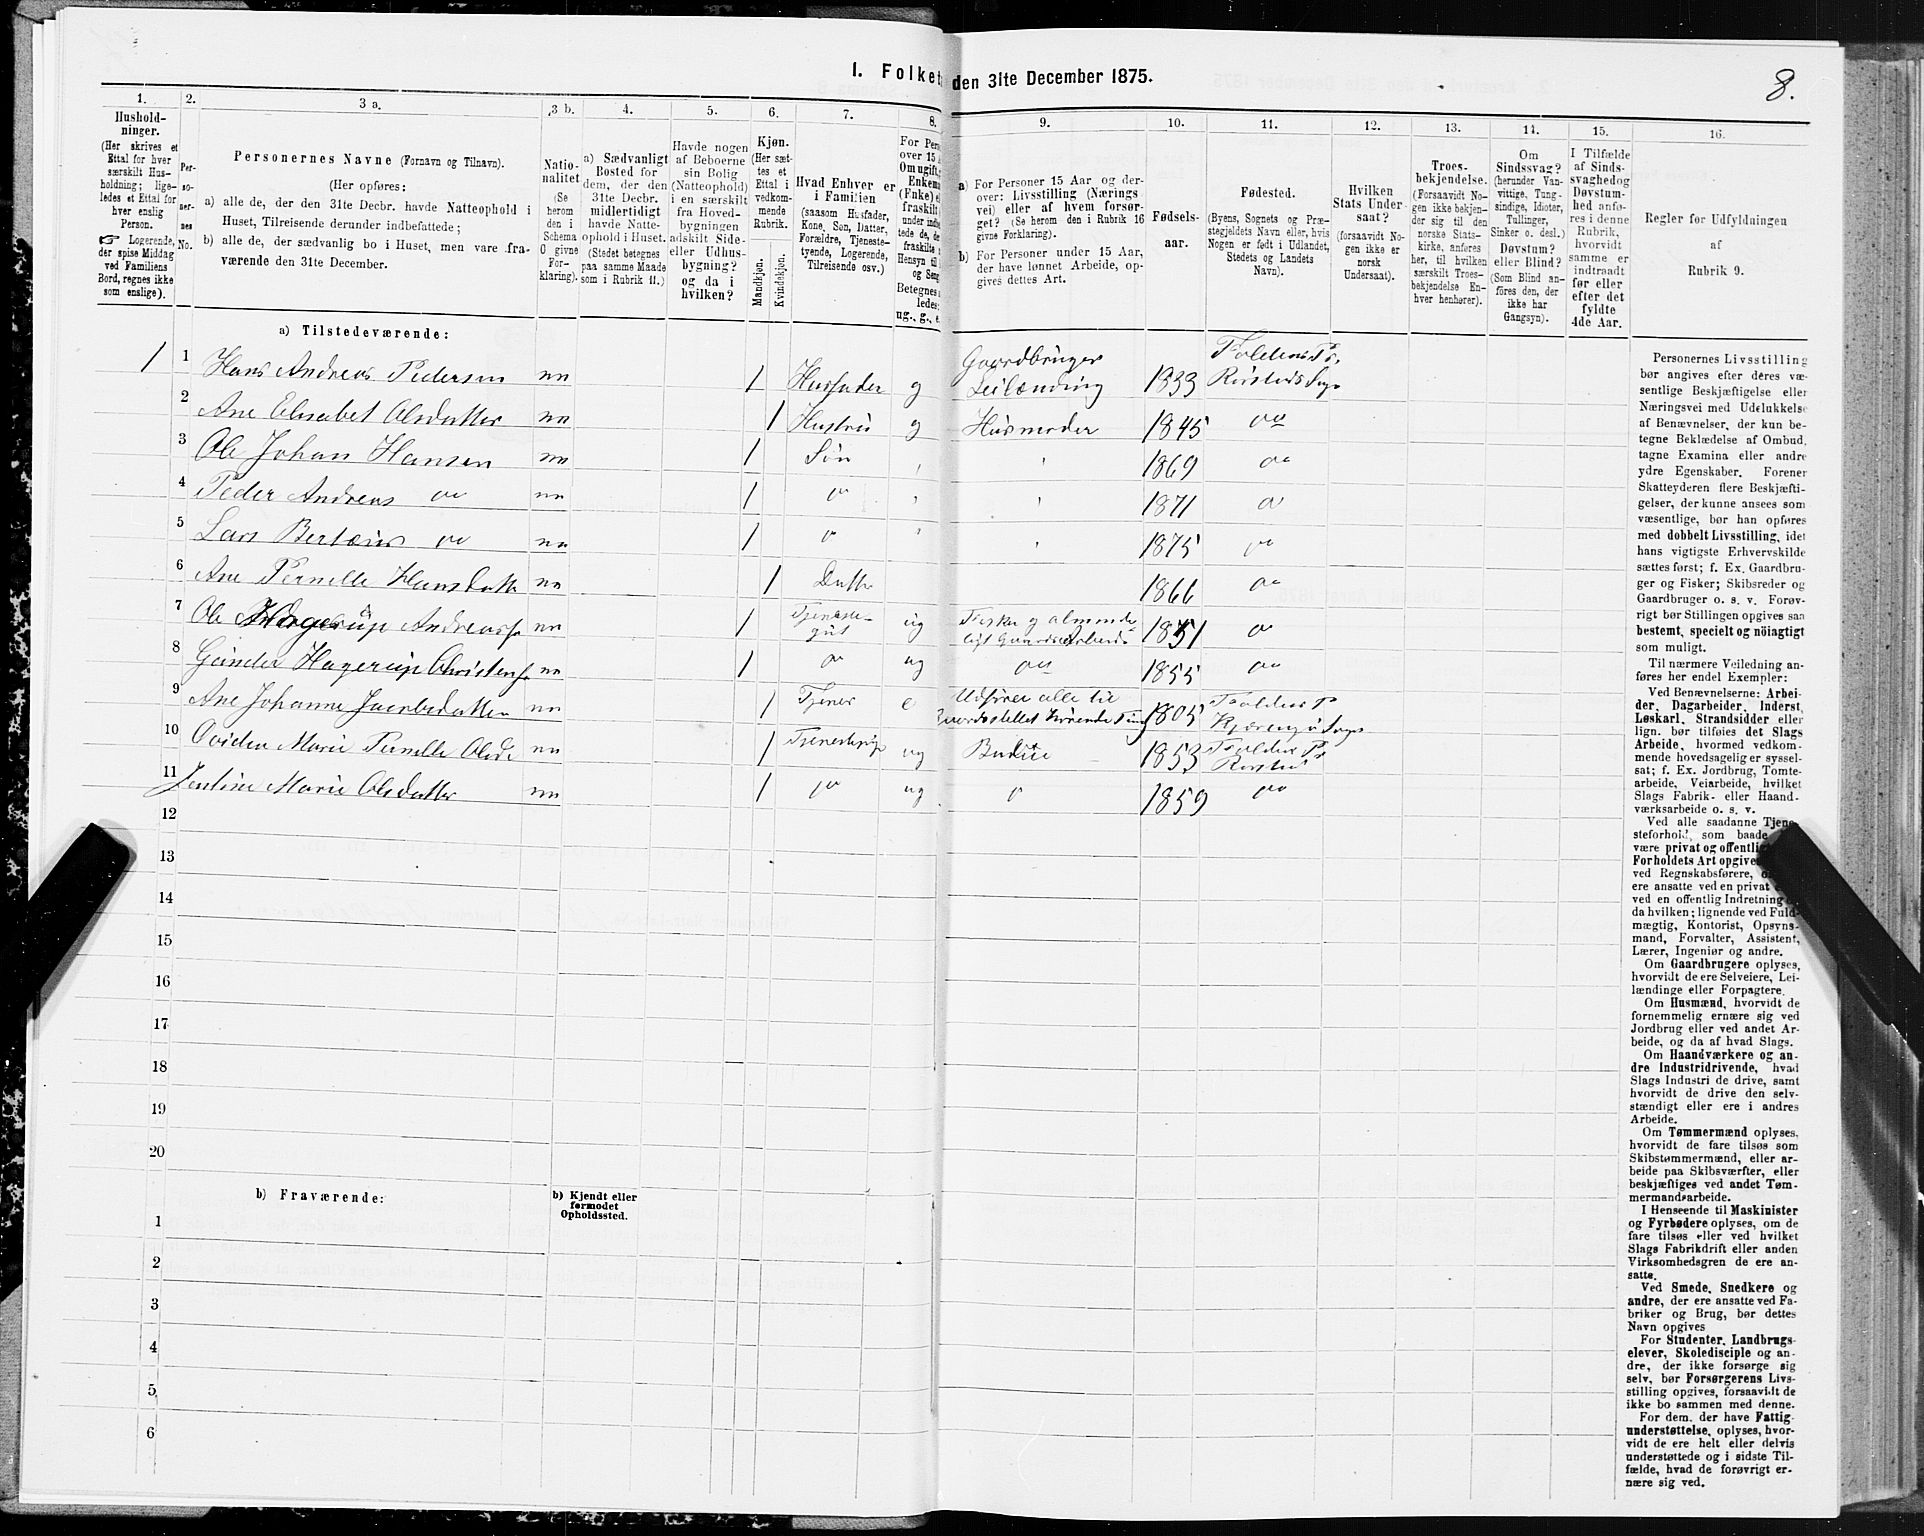 I. Folket
den 31te December 1875.
8.
1.
Hushold-
ninger.
(Her skrives et
Ettal for hver
særskilt Hus-
holdning; lige-
ledes et Ettal for
hver enslig
Person.
☞ Logerende,
der spise Middag
ved Familiens
Bord, regnes ikke
som enslige).
2.
Per-
so-
ner-
nes
No.
3 a.
Personernes Navne (Fornavn og Tilnavn).
(Her opføres:
a) alle de, der den 31te Decbr. havde Natteophold i
Huset, Tilreisende derunder indbefattede;
b) alle de, der sædvanlig bo i Huset, men vare fra-
værende den 31te December.
3 b.
Natio-
nalitet
(Se
herom
den i
Schema
O givne
For-
klaring).
4.
a) Sædvanligt
Bosted for
dem, der den
31te Decbr.
midlertidigt
havde Natte-
ophold i Huset.
(Stedet betegnes
paa samme Maade
som i Rubrik 11.)
5.
Havde nogen
af Beboerne
sin Bolig
(Natteophold)
i en særskilt
fra Hoved-
bygningen
adskilt Side-
eller Udhus-
bygning?
og da i
hvilken?
6.
Kjøn.
(Her sæt-
tes et
Ettal i
vedkom-
mende
Rubrik.
Mandkjøn.
Kvindekjøn.
7.
Hvad Enhver er
i Familien
(saasom Husfader,
Kone, Søn, Datter,
Forældre, Tjeneste-
tyende, Logerende,
Tilreisende osv.)
8.
For Pers
over 15 A
Om ugift,
Enkem
(Fnke) e
fraskilt
under ind
tede de, d
fraskilte
Hensyn til
og Seng
Betegnes
ledes:
ug., g., e
9.
a) For Personer 15 Aar og der-
over: Livsstilling (Nærings
vei) eller af hvem forsør-
get? (Se herom den i Rubrik 16
givne Forklaring).
b) For Personer under 15 Aar,
der have lønnet Arbeide, op-
gives dettes Art.
10.
Fødsels-
aar.
11.
Fødested.
(Byens, Sognets og Præ-
stegjeldets Navn eller, hvis
Nogen er født i Udlandet,
Stedets og Landets
Navn).
12.
Hvilken
Stats Under-
saat?
(forsaavidt No-
gen ikke er
norsk
Undersaat).
13.
Troes-
bekjendelse.
(Forsaavidt No-
gen ikke bekjen-
der sig til den
norske Stats-
kirke, anføres
her, til hvilken
særskilt Troes-
bekjendelse En-
hver henhører).
14.
Om
Sindssvag?
(herunder Van-
vittige, Tung-
sindige, Idioter,
Tullinger,
Sinker o. desl.)
Døvstum?
eller Blind?
(Som Blind an-
føres den, der
ikke har
Gangsyn).
15.
I Tilfælde
af Sinds-
svaghedog
Døvstum-
hed anfø-
res i denne
Rubrik,
hvorvidt
samme er
indtraadt
før eller
efter det
fyldte
4de Aar.
16.
Regler for Udfyldningen
af
Rubrik 9.
a) Tilstedeværende:
1 1 Hans Andreas Pedersen nn 1 Husfader g Gaardbruger Leilænding 1833 Foldens Pr. Rørstads Sogn
2 Ane Elisabet Olsdatter nn 1 Hustru g Husmoder 1845 do
3 Ole Johan Hansen nn 1 Søn 1869 do
4 Peder Andreas do nn 1 do 1871 do
5 Lars Bertæus do nn 1 do 1875 do
6 Ane Pernelle Hansdatter nn 1 Datter 1866 do
7 Ole Hagerup Andreass. nn 1 Tjeneste-gut ug Fisker og almindeligt Gaardsarbeide 1851 do
8 Gunder Hagerup Christens. nn 1 do ug do 1855 do
9 Ane Johanne Jacobsdatter nn 1 Tjener e Udfører alle til Gaardsstellet hørende Ting 1805 Foldens P Kjæringø Sogn
10 Ovidea Marie Pernelle Olsd. nn 1 Tjenestepige ug Budeie 1853 Foldens Pr Rørstad
11 Jentine Marie Olsdatter nn 1 do ug do 1859 do
12
13
14
15
16
17
18
19
20
b) Fraværende:
b) Kjendt eller
formodet
Opholdssted.
1
2
3
4
5
6
Personernes Livsstilling
bør angives efter deres væ-
sentlige Beskjæftigelse eller
Næringsvei med Udelukkelse
af Benævnelser, der kun be-
tegne Beklædelse af Ombud,
tagne Examina eller andre
ydre Egenskaber. Forener
Skatteyderen flere Beskjæfti-
gelser, der kunne ansees som
væsentlige, bør han opføres
med dobbelt Livsstilling, idet
hans vigtigste Erhvervskilde
sættes først; f. Ex. Gaardbru-
ger og Fisker; Skibsreder og
Gaardbruger o. s. v. Forøv-
rigt bør Stillingen opgives saa
bestemt, specielt og nöiagtigt
som muligt.
Til nærmere Veiledning an-
føres her endel Exempler:
Ved Benævnelserne: Arbei-
der, Dagarbeider, Inderst,
Løskarl, Strandsidder eller
lign. bør tilføies det Slags
Arbeide, hvormed vedkom-
mende hovedsagelig er syssel-
sat; f. Ex. Jordbrug, Tomte-
arbeide, Veiarbeide, hvilket
Slags Fabrik- eller Haand-
værksarbeide o. s. v.
Ved alle saadanne Tjene-
steforhold, som baade
være privat og offentlig
Forholdets Art opgive
ved Regnskabsførere,
ere ansatte ved en privat
ved en offentlig Indretning
da hvilken; lignende ved Fuld-
mægtig, Kontorist, Opsyns-
mand, Forvalter, Assistent,
Lærer, Ingeniør og andre.
Om Gaardbrugere oplyses,
hvorvidt de ere Selveiere, Lei-
lændinge eller Forpagtere.
Om Husmænd, hvorvidt de
fornemmelig ernære sig ved
Jordbrug eller ved andet Ar-
beide, og da af hvad Slags.
Om Haandværkere og an-
dre Industridrivende, hvad
Slags Industri de drive, samt
hvorvidt de drive den selv-
stændigt eller ere i andres
Arbeide.
Om Tømmermænd oplyses,
hvorvidt de fare tilsøs som
Skibstømmermænd, eller ar-
beide paa Skibsværfter, eller
beskjæftiges ved andet Tøm-
mermandsarbeide.
I Henseende til Maskinister
og Fyrbødere oplyses, om de
fare tilsøs eller ved hvilket
Slags Fabrikdrift eller anden
Virksomhedsgren de ere an-
satte.
Ved Smede, Snedkere og
andre, der ere ansatte ved Fa-
briker og Brug, bør dettes
Navn opgives
For Studenter, Landbrugs-
elever, Skoledisciple og an-
dre, der ikke forsørge sig
selv, bør Forsørgerens Livs-
stilling opgives, forsaavidt de
ikke bo sammen med denne.
For dem, der have Fattig-
understøttelse, oplyses, hvor-
vidt de ere helt eller delvis
understøttede og i sidste Til-
fælde, hvad de forøvrigt er-
nære sig ved.